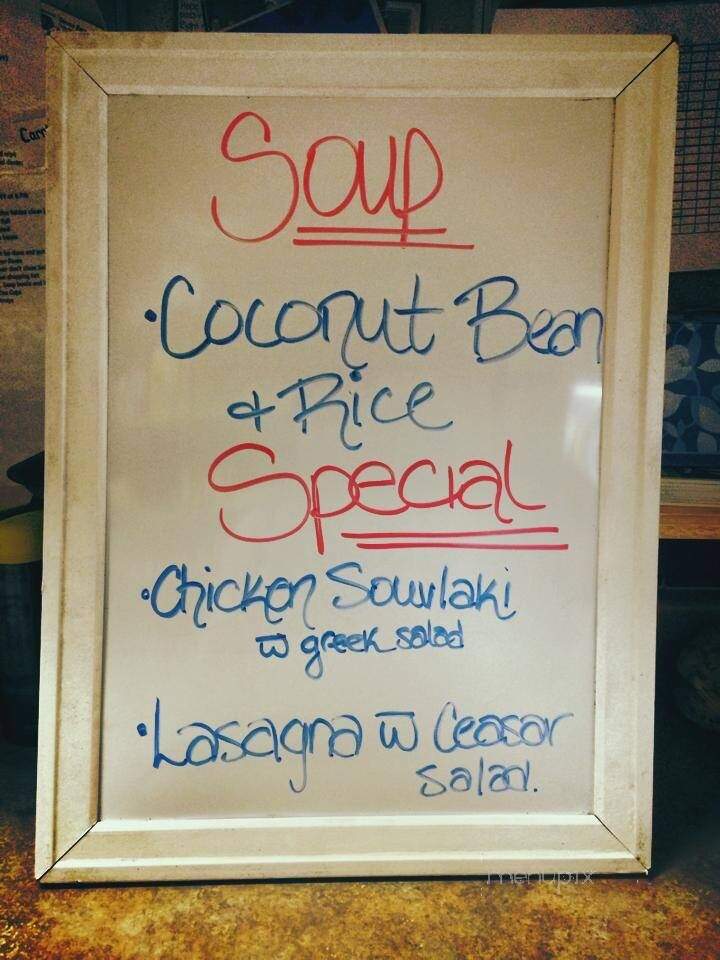 Soup
·Coconut Bean
& Rice
Special
·Chicken Souvlaki
w̅ greek salad
·Lasagna w̅ Ceasar
salad.
menupix